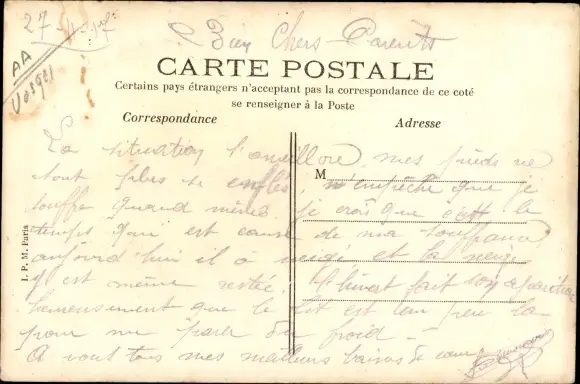 27-
AA
Vosges
Bien Chers Parents
CARTE POSTALE
Certains pays étrangers n'acceptant pas la correspondance de ce coté
se renseigner à la Poste
Correspondance
Adresse
M
I. P. M. Paris
La situation s'améliore, mes pieds ne
sont plus si enflés, n'empêche que je
souffre quand même. je crois que c'est le
temps qui est cause de ma souffrance,
aujourd'hui il a neigé et la neige
y est même restée. l'hiver fait son apparition
heureusement que le lit est un peu là
pour me parer du froid -
A vous tous mes meilleurs baisers de coeur